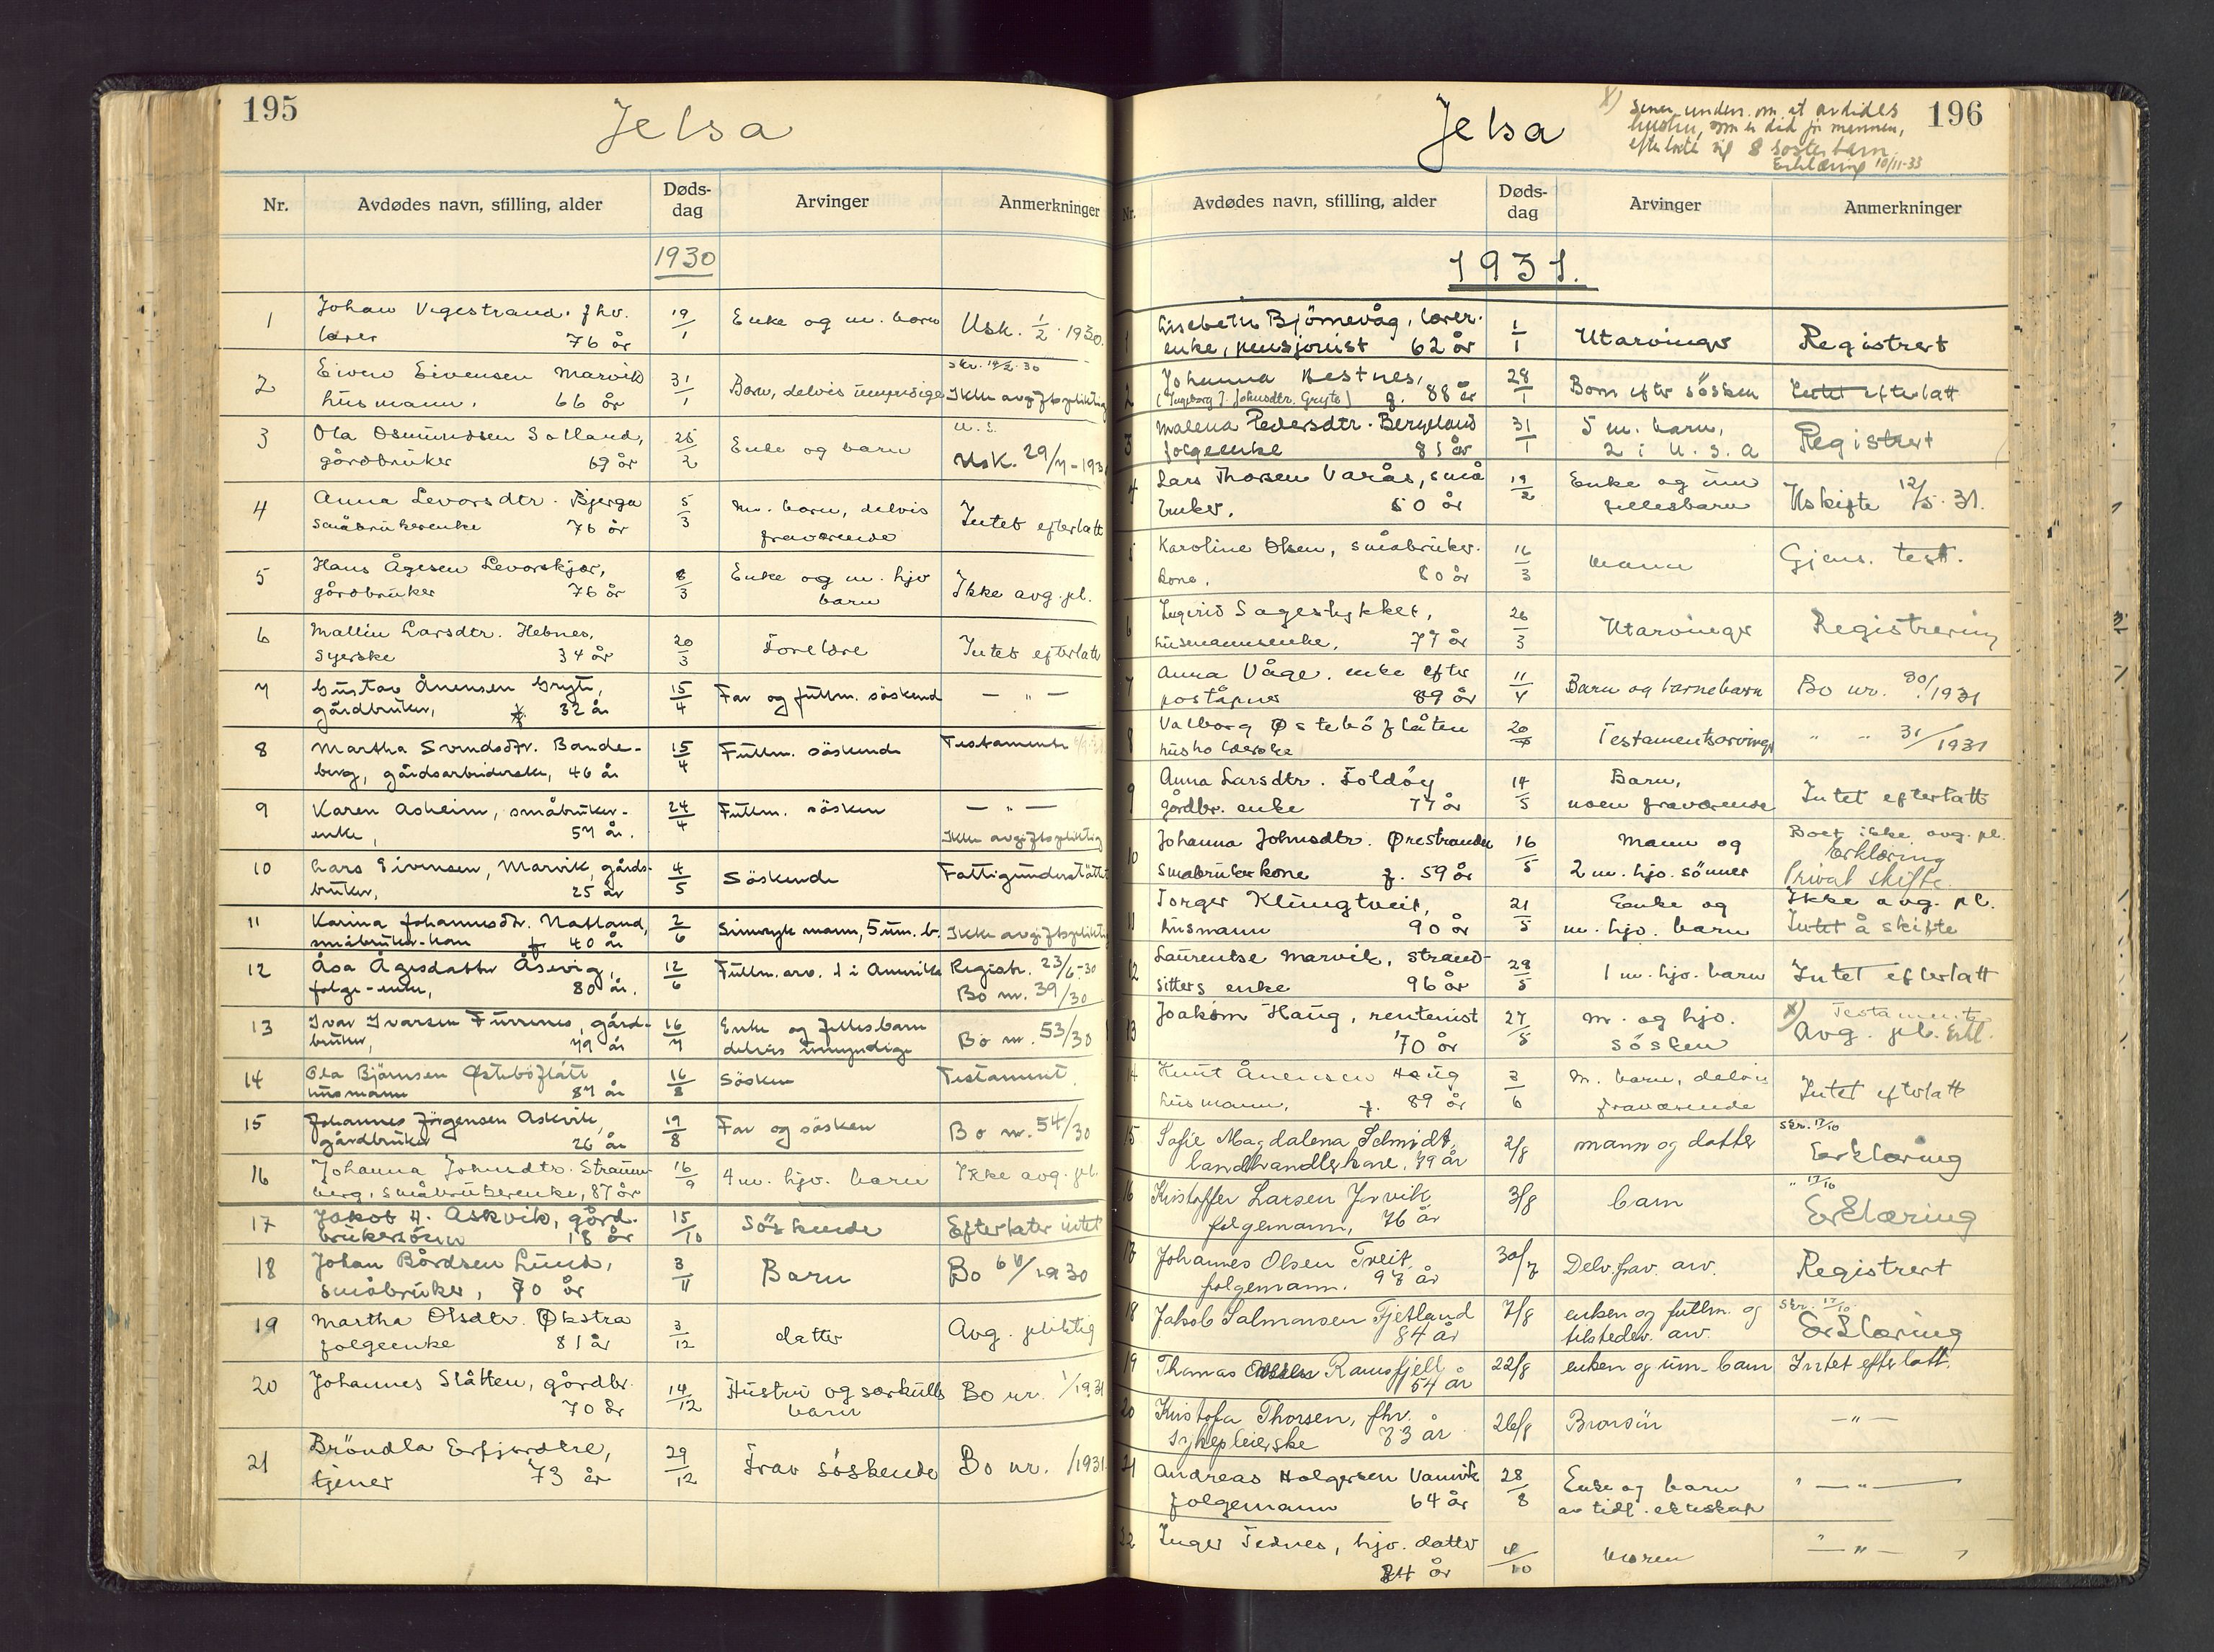 195
Jelsa
Nr. Avdødes navn, stilling, alder Døds-dag Arvinger Anmerkninger
1930
1 Johan Vegestrand. fhv. 19/1 Enke og m. barn Usk. 1/2 1930.
lærer 76 år
2 Eivend Eivensen Marvik 31/1 Barn, delvis umyndige Skr. 14/2 30
husmann. 66 år Ikke avgiftspliktig
3 Ola Osmundsen Solland, 25/2 Enke og barn
gårdbruker 69 år Usk. 29/7-1931
4 Anna Levorsdtr. Bjerga 5/3 m. barn, delvis Intet efterlatt
småbrukerenke 76 år fraværende
5 Hans Ågesen Levorskjær, 8/3 Enke og m. hjv Ikke avg. pl.
gårdbruker 76 år barn
6 Mallin Larsdtr. Hebnes, 20/3 Foreldre Intet efterlatt
syerske 34 år
7 Gustav Ånensen Gryte, 15/4 Far og fullm. söskend — " —
gårdbruker, f. 32 år
8 Martha Svendsdtr. Bande- 15/4 Fullm. söskende Testamente
berg, gårdsarbeiderske, 46 år
9 Karen Asheim, småbruker- 24/4 Fullm. sösken — " —
enke, 57 år. Ikke avgiftspliktig
10 Lars Eivensen, Marvik, gårds- 4/5 Söskende Fattigunderstøtte
bruker, 25 år
11 Karina Johannesdtr. Natland, 2/6 Sinnsyk mann, 5 um. b. Ikke avgiftspliktig
småbruker-kone f. 40 år
12 Åsa Ågesdatter Åsevig, 12/6 Fullm. arv. 1 i Amerika Registr. 23/6-30
folge-enke, 80 år. Bo nr. 39/30
13 Ivar Ivarsen Furrenes, gård- 16/7 Enke og fellesbarn Bo nr. 53/30
bruker, 79 år delvis umyndige
14 Ola Bjørnsen Østebøflått 16/8 Sösken Testament.
husmann 87 år
15 Johannes Jörgensen Askvik, 19/8 Far og sösken Bo nr. 54/30
gårdbruker 26 år
16 Johanna Johnsdtr. Straum- 16/9 4 m. hjv. barn Ikke avg. pl.
berg, småbrukerenke, 87 år
17 Jakob H. Askvik, gård- 15/10 Söskende Efterlater intet
brukersönn 18 år
18 Johan Bårdsen Lund, 3/11 Barn Bo 64/1930
småbruker, 70 år
19 Martha Olsdtr. Økstra 3/12 datter Avg. pliktig
folgeenke 81 år
20 Johannes Slåtten, gårdbr. 14/12 Hustru og særkulls Bo nr. 1/1931
70 år barn
21 Bröndla Erfjordtre, 29/12 Frav söskende Bo nr. /1931.
tjener 73 år
196
Jelsa
x) Senere underr. om at avdødes
hustru, som er död för mannen,
efterlot sig 8 sösterbarn
Erklæring 10/11-33
Nr. Avdødes navn, stilling, alder Døds-dag Arvinger Anmerkninger
1931.
1 Lisebeth Björnevåg, lærer- 1/1 Utarvinger Registrert
enke, pensjonist 62 år
2 Johanna Nestnes, 28/1 Barn efter sösken Intet efterlatt
(Ingeborg J. Johnsdtr. Gryte) f. 88 år
3 Malena Pedersdtr. Bergeland 31/1 5 m. barn, Registrert
folgeenke 81 år 2 i U.S.A
4 Lars Thorsen Varås, små 19/2 Enke og um Uskifte 12/5. 31.
bruker. 50 år fellesbarn
5 Karoline Olsen, småbruker- 16/3 Mann Gjens. test.
kone. 80 år
6 Ingerid Sagestykket, 26/3 Utarvinger Registrering
husmannsenke, 77 år
7 Anna Våge. enke efter 11/4 Barn og barnebarn Bo nr. 30/1931
poståpner 89 år
8 Valborg Østebøflåten 20/4 Testamentsarvinger " " 31/1931
husholderske
9 Anna Larsdtr. Foldöy 14/5 Barn, Intet efterlatt
gårdbr. enke 77 år noen fraværende
10 Johanna Johnsdtr. Ørestranden 16/5 Mann og Boet ikke avg. pl.
Småbrukerkone f. 59 år 2 m. hjv. sönner Erklæring
Privat skifte.
11 Torger Klungtveit, 21/5 Enke og Ikke avg. pl.
husmann 90 år m. hjv. barn Intet å skifte
12 Laurentse Marvik, strand- 28/5 1 m. hjv. barn Intet efterlatt
sitters enke 96 år
13 Joakim Haug, rentenist 27/5 m. og hjv. x) Testamente
70 år sösken Avg. pl. Erkl.
14 Knut Ånensen Haug 3/6 m. barn, delvis Intet efterlatt
husmann, f. 89 år fraværende
15 Sofie Magdalena Schmidt, 2/8 mann og datter Skr. 17/10
landhandlerkone, 79 år Erklæring
16 Kristoffer Larsen Jovik 3/8 barn " 17/10
folgemann, 76 år Erklæring
17 Johannes Olsen Tveit, 30/7 Delv. frav. arv. Registrert
folgemann. 93 år
18 Jakob Salmonsen Tjetland 7/8 enken og fullm. og Skr. 17/10.
84 år tilstedev. arv. Erklæring
19 Thomas Ramsfjell 22/8 enken og um. barn Intet efterlatt.
54 år
20 Kristofa Thorsen, fhv. 26/8 Brorsön — " —
sykepleierske 73 år
21 Andreas Holgersen Vanvik 28/8 Enke og barn — " —
folgemann 64 år av tidl. ekteskap
22 Inger Tednes, hjv. datter 4/10 Moren — " —
24 år